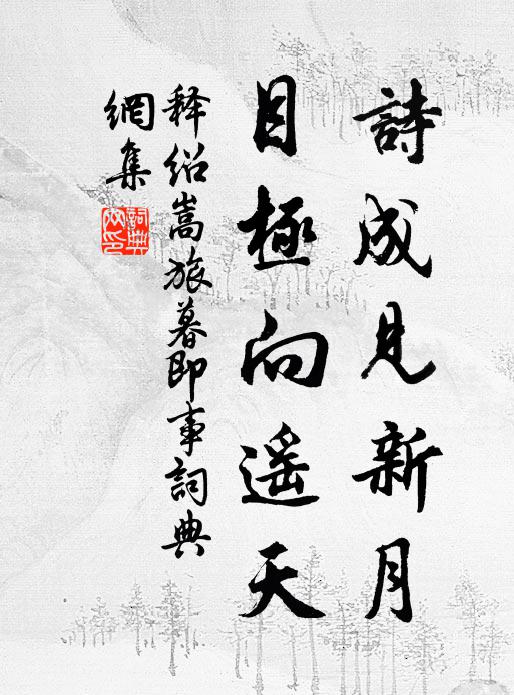 詩成見新月
目極向遥天
释紹嵩旅暮即事詞典
網集
詞典
网印